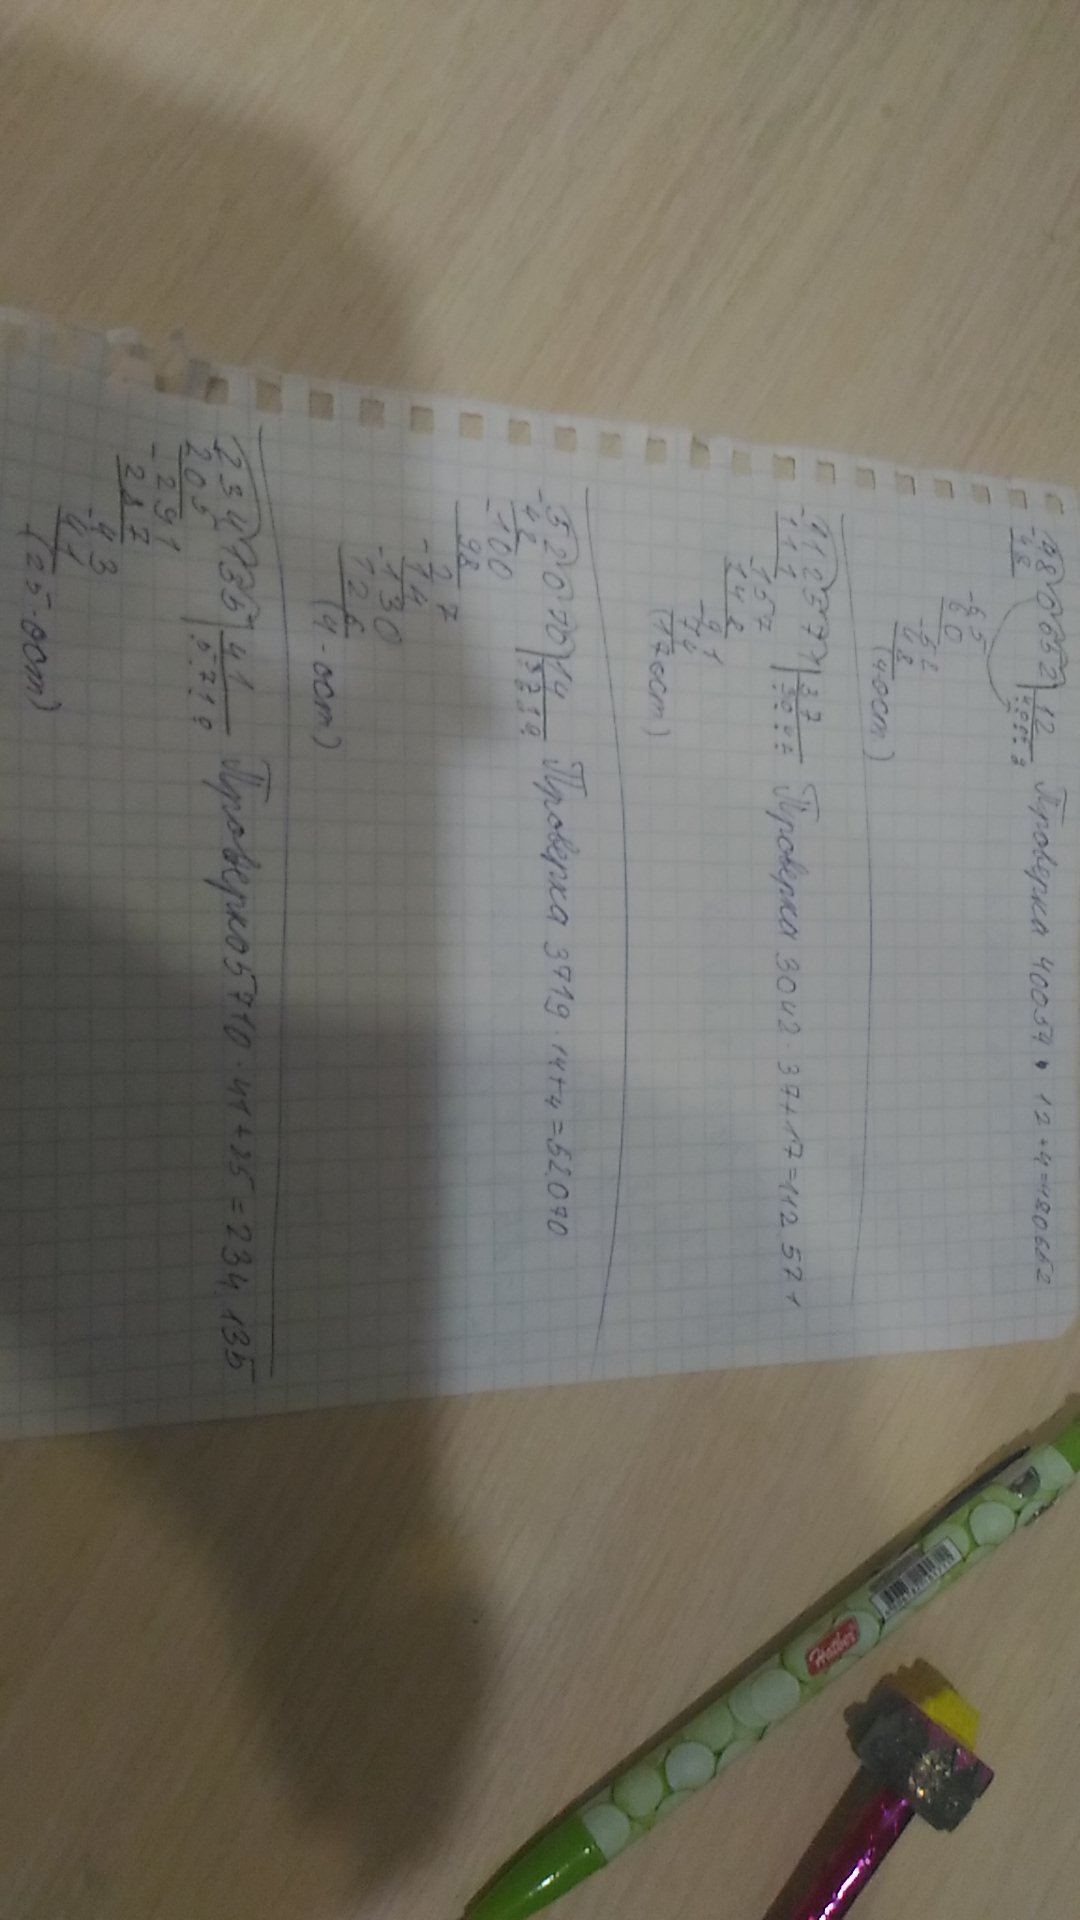 480652 | 12 Проверка 40054 · 12 + 4 = 480652
48
65
60
52
48
(4 ост)
112571 | 37 Проверка 3042 · 37 + 17 = 112571
111
157
148
91
74
(17 ост)
52070 | 14 Проверка 3719 · 14 + 4 = 52070
42 3719
100
98
27
14
130
126
(4 - ост)
234135 | 41 Проверка 5710 · 41 + 25 = 234135
205 5710
291
287
43
41
(25 - ост)
Hatber